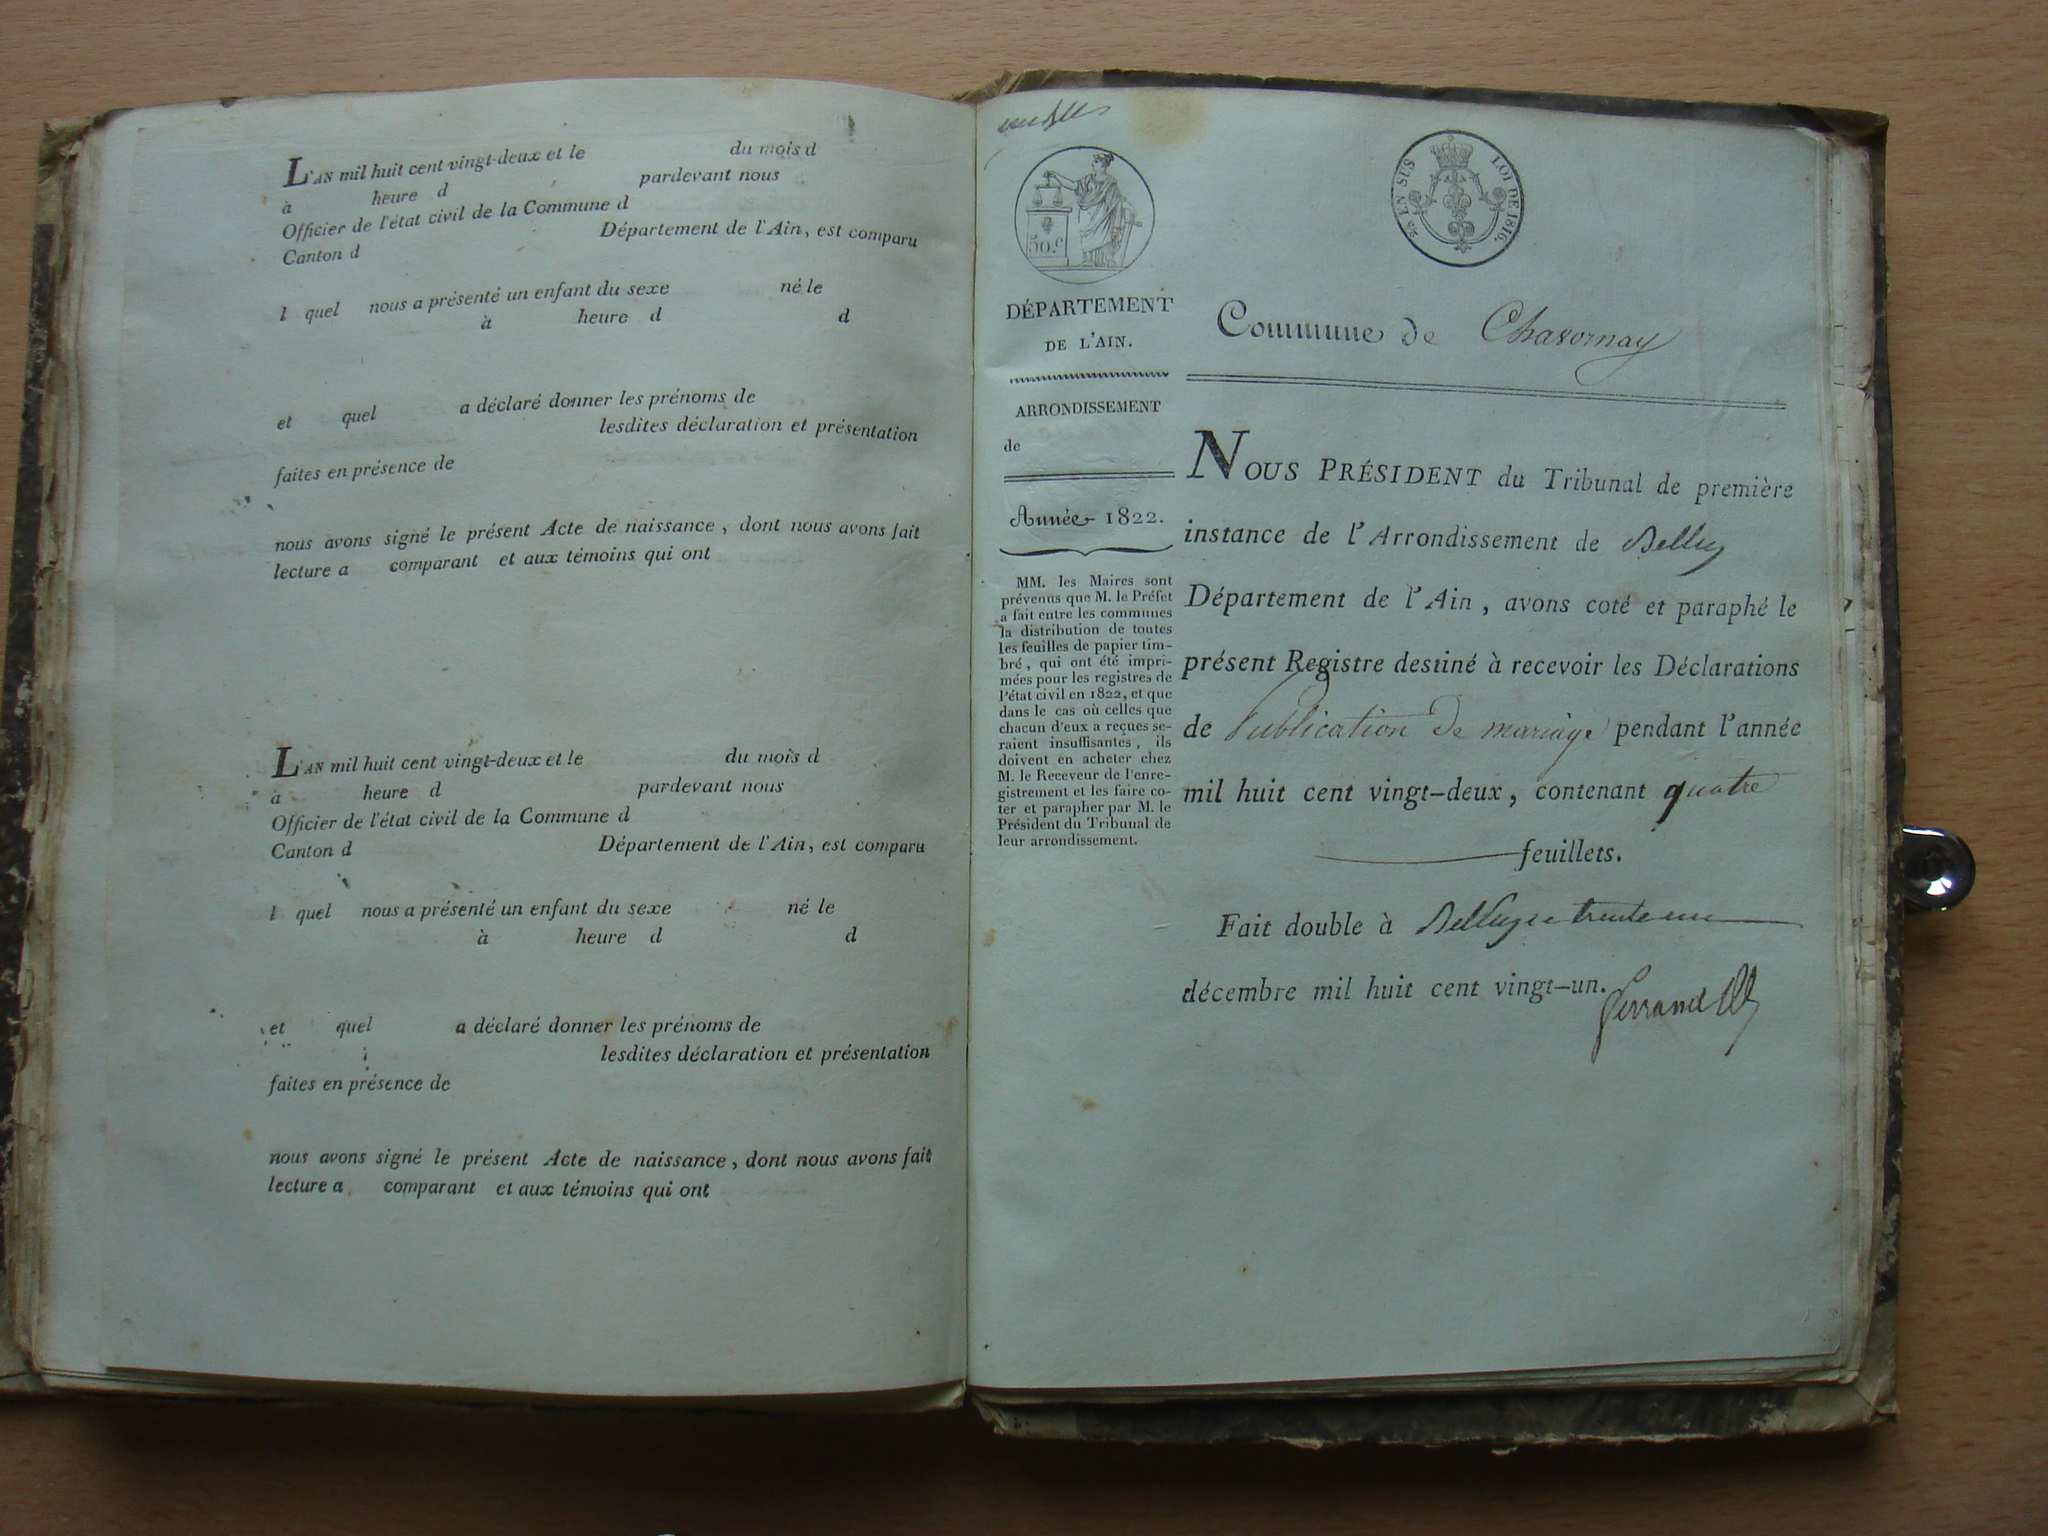 L'AN mil huit cent vingt-deux et le du mois d
à heure d pardevant nous
Officier de l'état civil de la Commune d
Canton d Département de l'Ain, est comparu
l quel nous a présenté un enfant du sexe né le
à heure d d
et quel a déclaré donner les prénoms de
lesdites déclaration et présentation
faites en présence de
nous avons signé le présent Acte de naissance, dont nous avons fait
lecture a comparant et aux témoins qui ont
L'AN mil huit cent vingt-deux et le du mois d
à heure d pardevant nous
Officier de l'état civil de la Commune d
Canton d Département de l'Ain, est comparu
l quel nous a présenté un enfant du sexe né le
à heure d d
et quel a déclaré donner les prénoms de
lesdites déclaration et présentation
faites en présence de
nous avons signé le présent Acte de naissance, dont nous avons fait
lecture a comparant et aux témoins qui ont
50.c
EN SUS LOI DE 1816.
DÉPARTEMENT
DE L'AIN.
ARRONDISSEMENT
de
Année 1822.
MM. les Maires sont
prévenus que M. le Préfet
a fait entre les communes
la distribution de toutes
les feuilles de papier tim-
bré, qui ont été impri-
mées pour les registres de
l'état civil en 1822, et que
dans le cas où celles que
chacun d'eux a reçues se-
raient insuffisantes, ils
doivent en acheter chez
M. le Receveur de l'enre-
gistrement et les faire co-
ter et parapher par M. le
Président du Tribunal de
leur arrondissement.
Commune de Chavornay
NOUS PRÉSIDENT du Tribunal de première
instance de l'Arrondissement de Belley
Département de l'Ain, avons coté et paraphé le
présent Registre destiné à recevoir les Déclarations
de Publication de mariage pendant l'année
mil huit cent vingt-deux, contenant quatre
feuillets.
Fait double à Belley le trente un
décembre mil huit cent vingt-un.